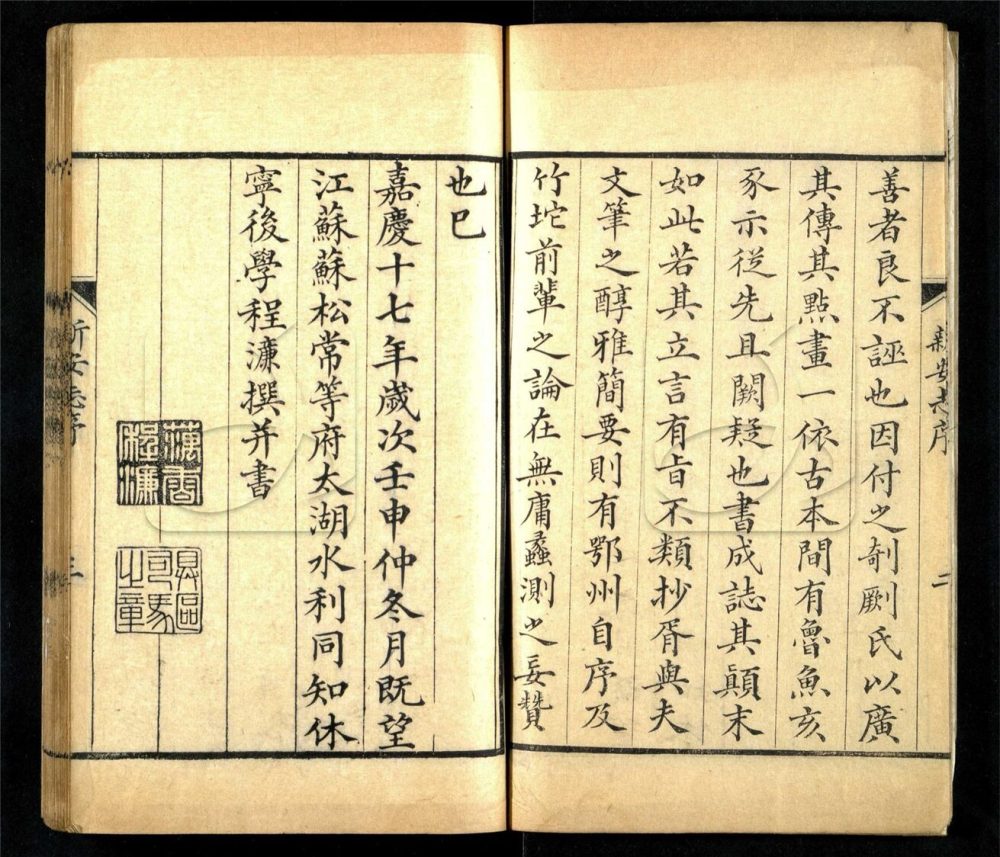 新安志序 二
善者良不誣也因付之剞劂氏以廣
其傳其點畫一依古本間有魯魚亥
豕示從先且闕疑也書成誌其顛末
如此若其立言有旨不類抄胥與夫
文筆之醇雅簡要則有鄂州自序及
竹垞前輩之論在無庸蠡測之妄贊
也已
嘉慶十七年歲次壬申仲冬月既望
江蘇蘇松常等府太湖水利同知休
寧後學程濂撰并書
程濂
具區司馬之章
新安志序 三